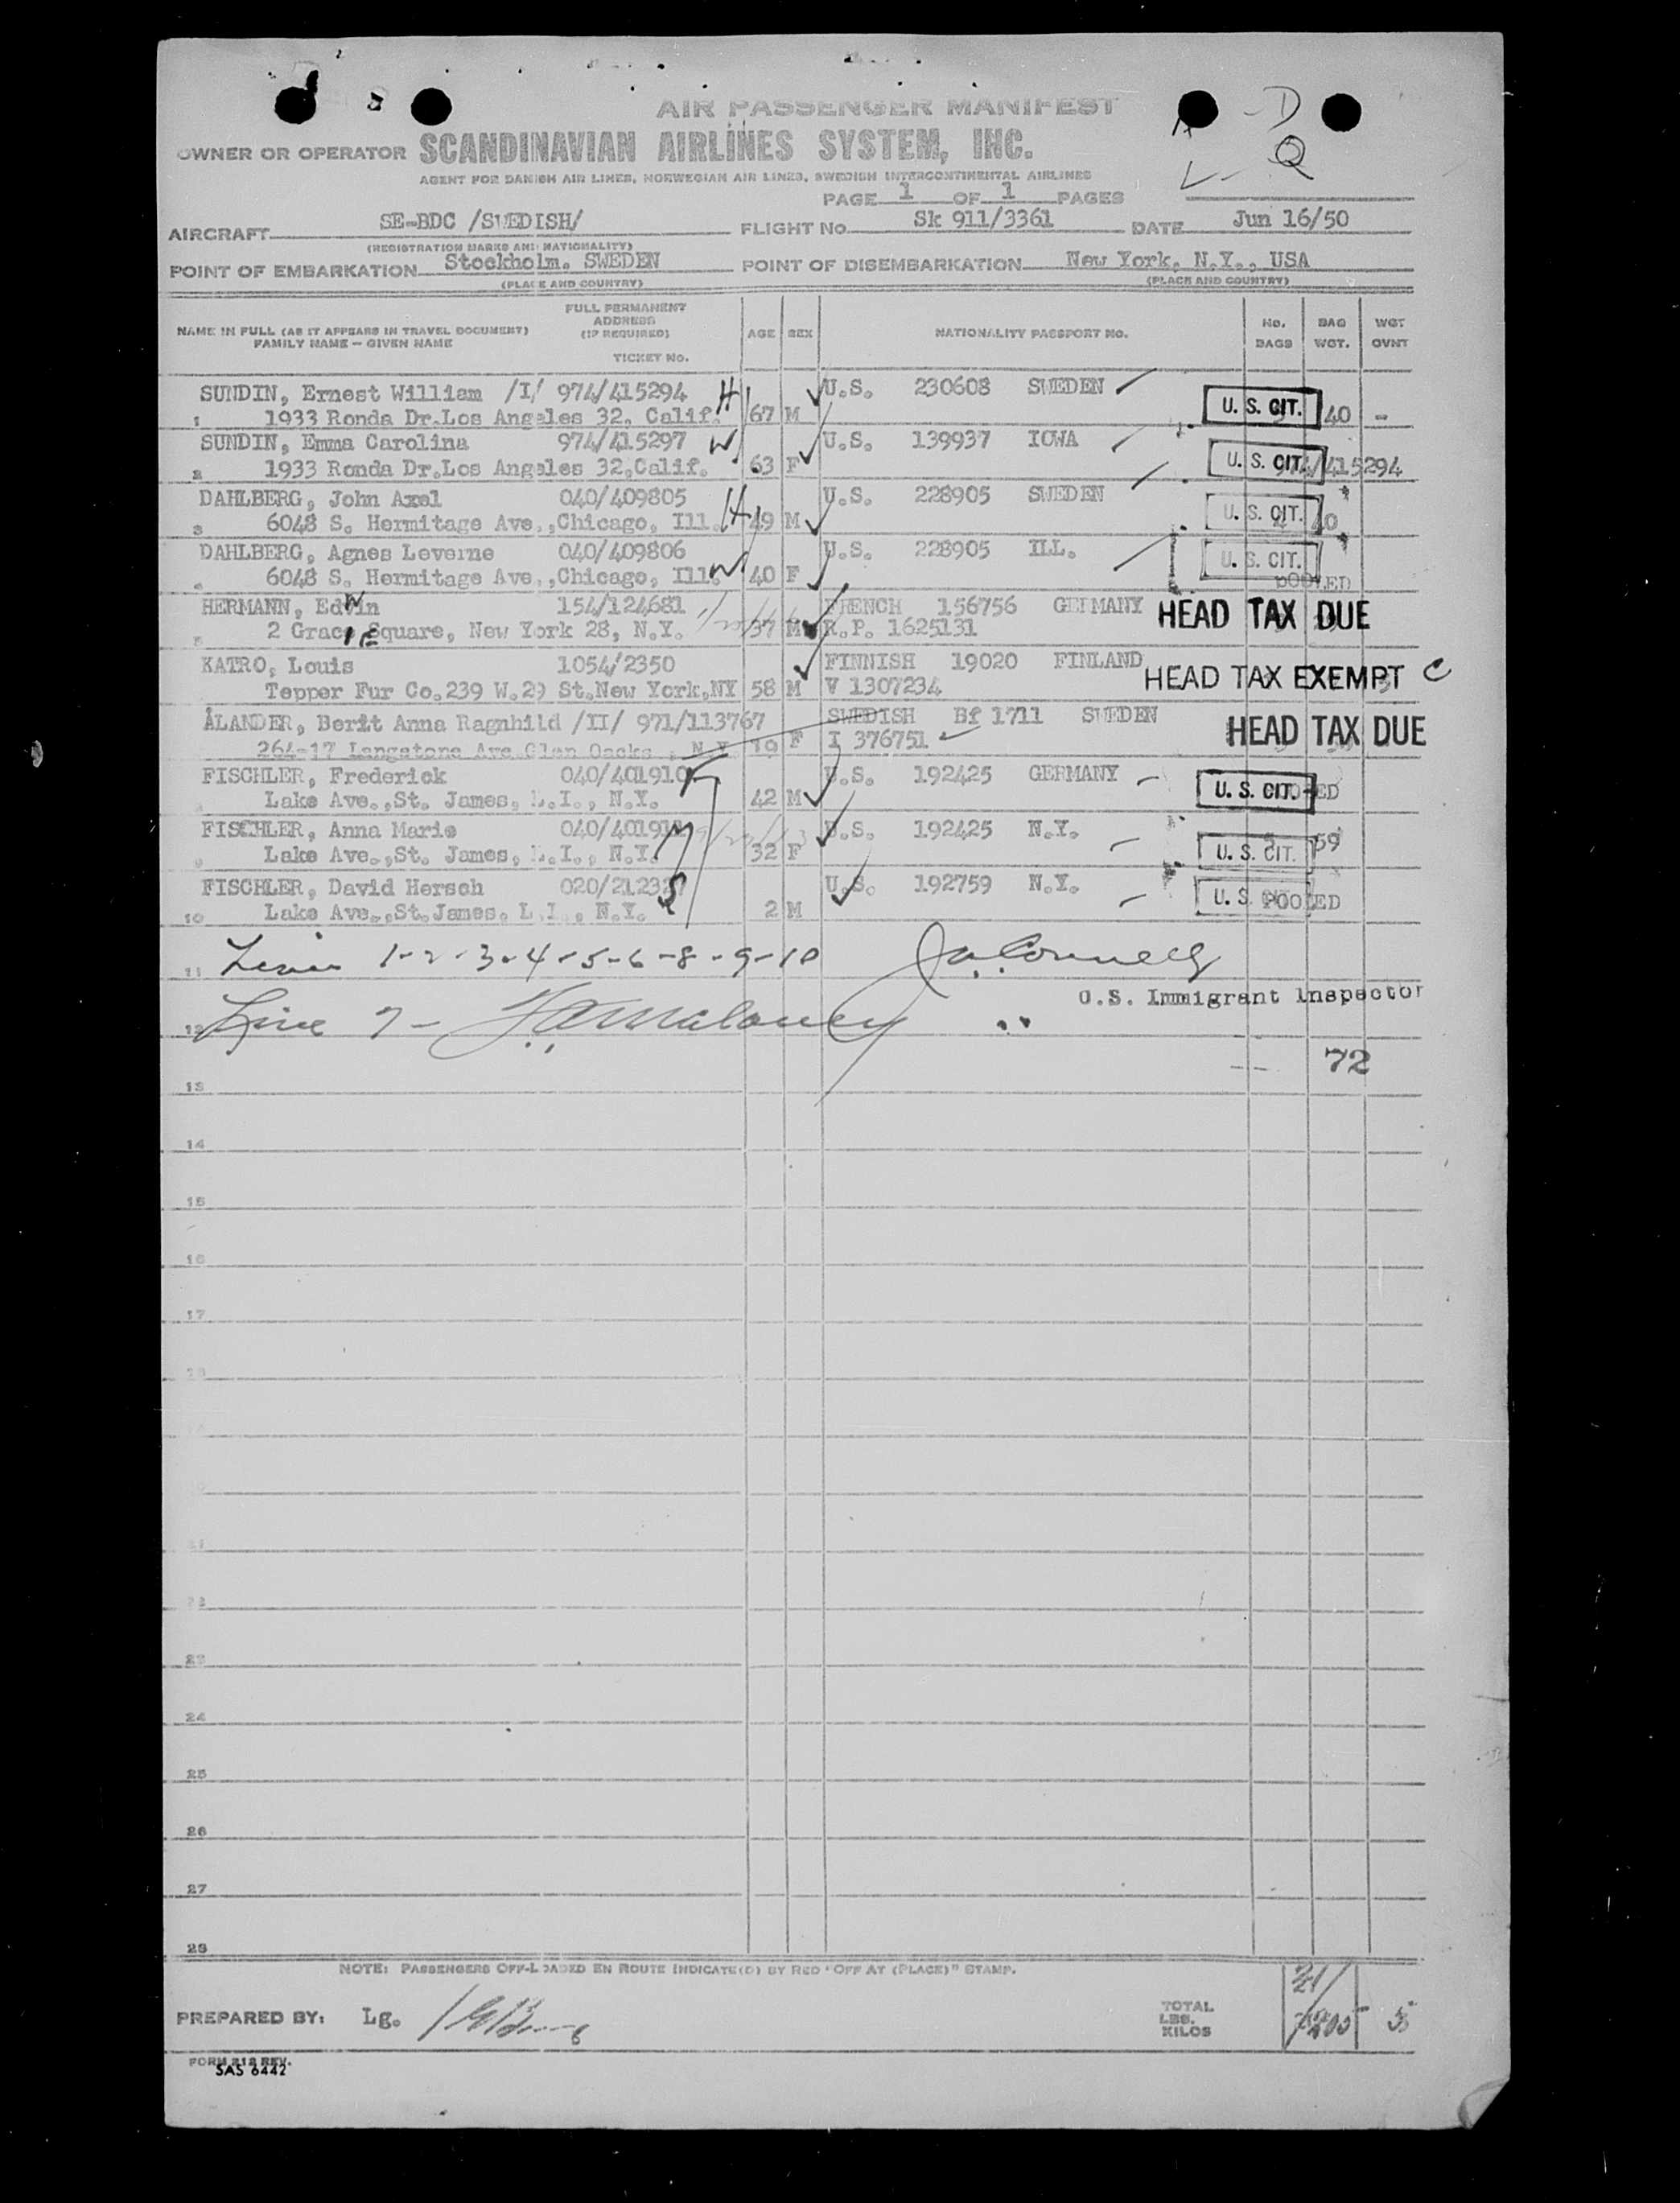 AIR PASSENGER MANIFEST
OWNER OR OPERATOR SCANDINAVIAN AIRLINES SYSTEM, INC.
AGENT FOR DANISH AIR LINES, NORWEGIAN AIR LINES, SWEDISH INTERCONTINENTAL AIRLINES
D
Q
PAGE 1 OF 1 PAGES
AIRCRAFT SE-BDC /SWEDISH/ FLIGHT No. Sk 911/3361 DATE Jun 16/50
(REGISTRATION MARKS AND NATIONALITY)
POINT OF EMBARKATION Stockholm. SWEDEN POINT OF DISEMBARKATION New York, N.Y., USA
(PLACE AND COUNTRY) (PLACE AND COUNTRY)
NAME IN FULL (AS IT APPEARS IN TRAVEL DOCUMENT) FAMILY NAME — GIVEN NAME
FULL PERMANENT ADDRESS (IF REQUIRED) TICKET No.
AGE SEX NATIONALITY PASSPORT NO. No. BAGS BAG WGT. WGT OVNT
SUNDIN, Ernest William /I/ 974/415294 H U.S. 230608 SWEDEN U. S. CIT. 40 -
1 1933 Ronda Dr.Los Angeles 32, Calif. 67 M
SUNDIN, Emma Carolina 974/415297 W U.S. 139937 IOWA
2 1933 Ronda Dr.Los Angeles 32,Calif. 63 F U. S. CIT. 415294
DAHLBERG, John Axel 040/409805 H U.S. 228905 SWEDEN
3 6048 S. Hermitage Ave.,Chicago, Ill. 49 M U. S. CIT. 40
DAHLBERG, Agnes Leverne 040/409806 W U.S. 228905 ILL.
6048 S. Hermitage Ave.,Chicago, Ill. 40 F U. S. CIT. POOLED
HERMANN, Edwin 154/124681 FRENCH 156756 GERMANY HEAD TAX DUE
5 2 Grace Square, New York 28, N.Y. 37 M R.P. 1625131
KATRO, Louis 1054/2350 FINNISH 19020 FINLAND HEAD TAX EXEMPT C
Tepper Fur Co.239 W.29 St.New York,NY 58 M V 1307234
ÅLANDER, Berit Anna Ragnhild /II/ 971/113767 SWEDISH Bf 1711 SWEDEN HEAD TAX DUE
264-17 Langstone Ave Glen Oaks, N.Y. 19 F I 376751
FISCHLER, Frederick 040/401910 U.S. 192425 GERMANY
Lake Ave.,St. James, L.I., N.Y. 42 M U. S. CIT.
FISCHLER, Anna Marie 040/401911 U.S. 192425 N.Y.
Lake Ave.,St. James, L.I., N.Y. 32 F U. S. CIT. 59
FISCHLER, David Hersch 020/21232 S U.S. 192759 N.Y.
10 Lake Ave.,St.James, L.I., N.Y. 2 M U. S. POOLED
11 Lines 1-2-3-4-5-6-8-9-10
U.S. Immigrant Inspector
12 Line 7 - "
72
13
14
15
16
17
22
23
24
25
26
27
28
NOTE: PASSENGERS OFF-LOADED EN ROUTE INDICATE(D) BY RED "OFF AT (PLACE)" STAMP.
PREPARED BY: Lg. TOTAL LBS. KILOS 21
FORM 218 REV.
SAS 6442